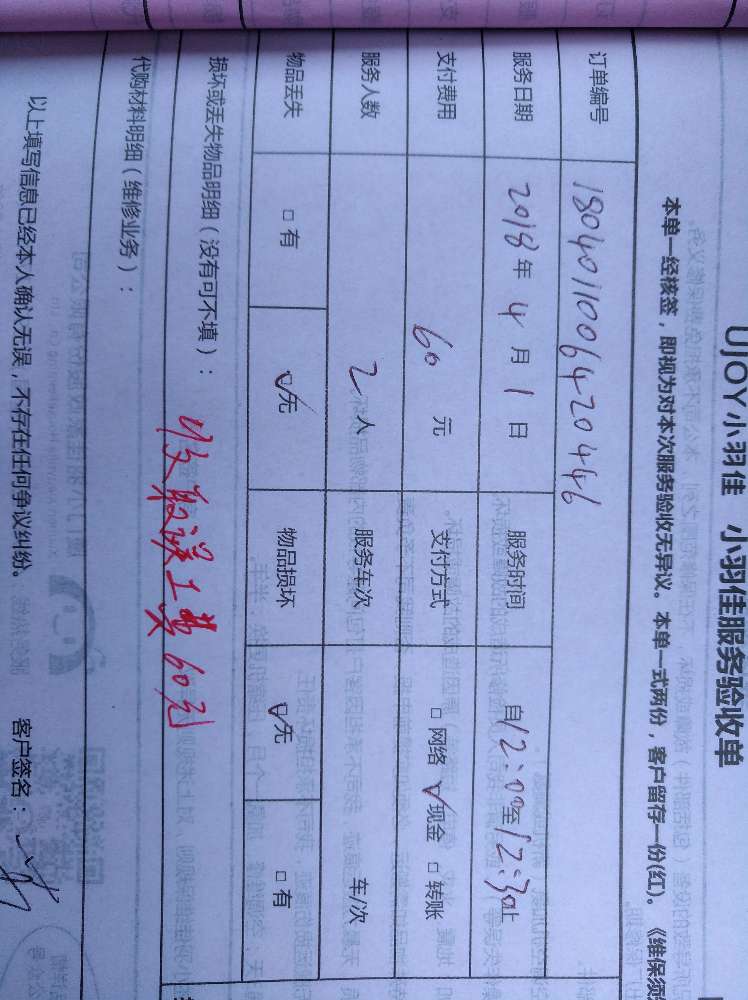 UJOY小羽佳 小羽佳服务验收单
本单一经核签，即视为对本次服务验收无异议。本单一式两份，客户留存一份(红)。《维保须
订单编号 1804011006420446
服务日期 2018年4月1日 服务时间 自12:00至12:30止
支付费用 60元 支付方式 □网络 ☑现金 □转账
服务人数 2人 服务车次 车/次
物品丢失 □有 ☑无 物品损坏 ☑无 □有
损坏或丢失物品明细（没有可不填）：
收取误工费60元
代购材料明细（维修业务）：
以上填写信息已经本人确认无误，不存在任何争议纠纷。 客户签名：